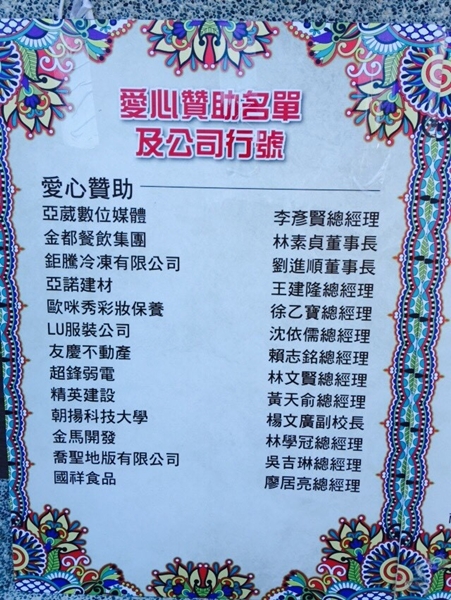 愛心贊助名單
及公司行號
愛心贊助
亞葳數位媒體 李彥賢總經理
金都餐飲集團 林素貞董事長
鉅騰冷凍有限公司 劉進順董事長
亞諾建材 王建隆總經理
歐咪秀彩妝保養 徐乙寶總經理
LU服裝公司 沈依儒總經理
友慶不動產 賴志銘總經理
超鋒弱電 林文賢總經理
精英建設 黃天俞總經理
朝揚科技大學 楊文廣副校長
金馬開發 林學冠總經理
喬聖地版有限公司 吳吉琳總經理
國祥食品 廖居亮總經理